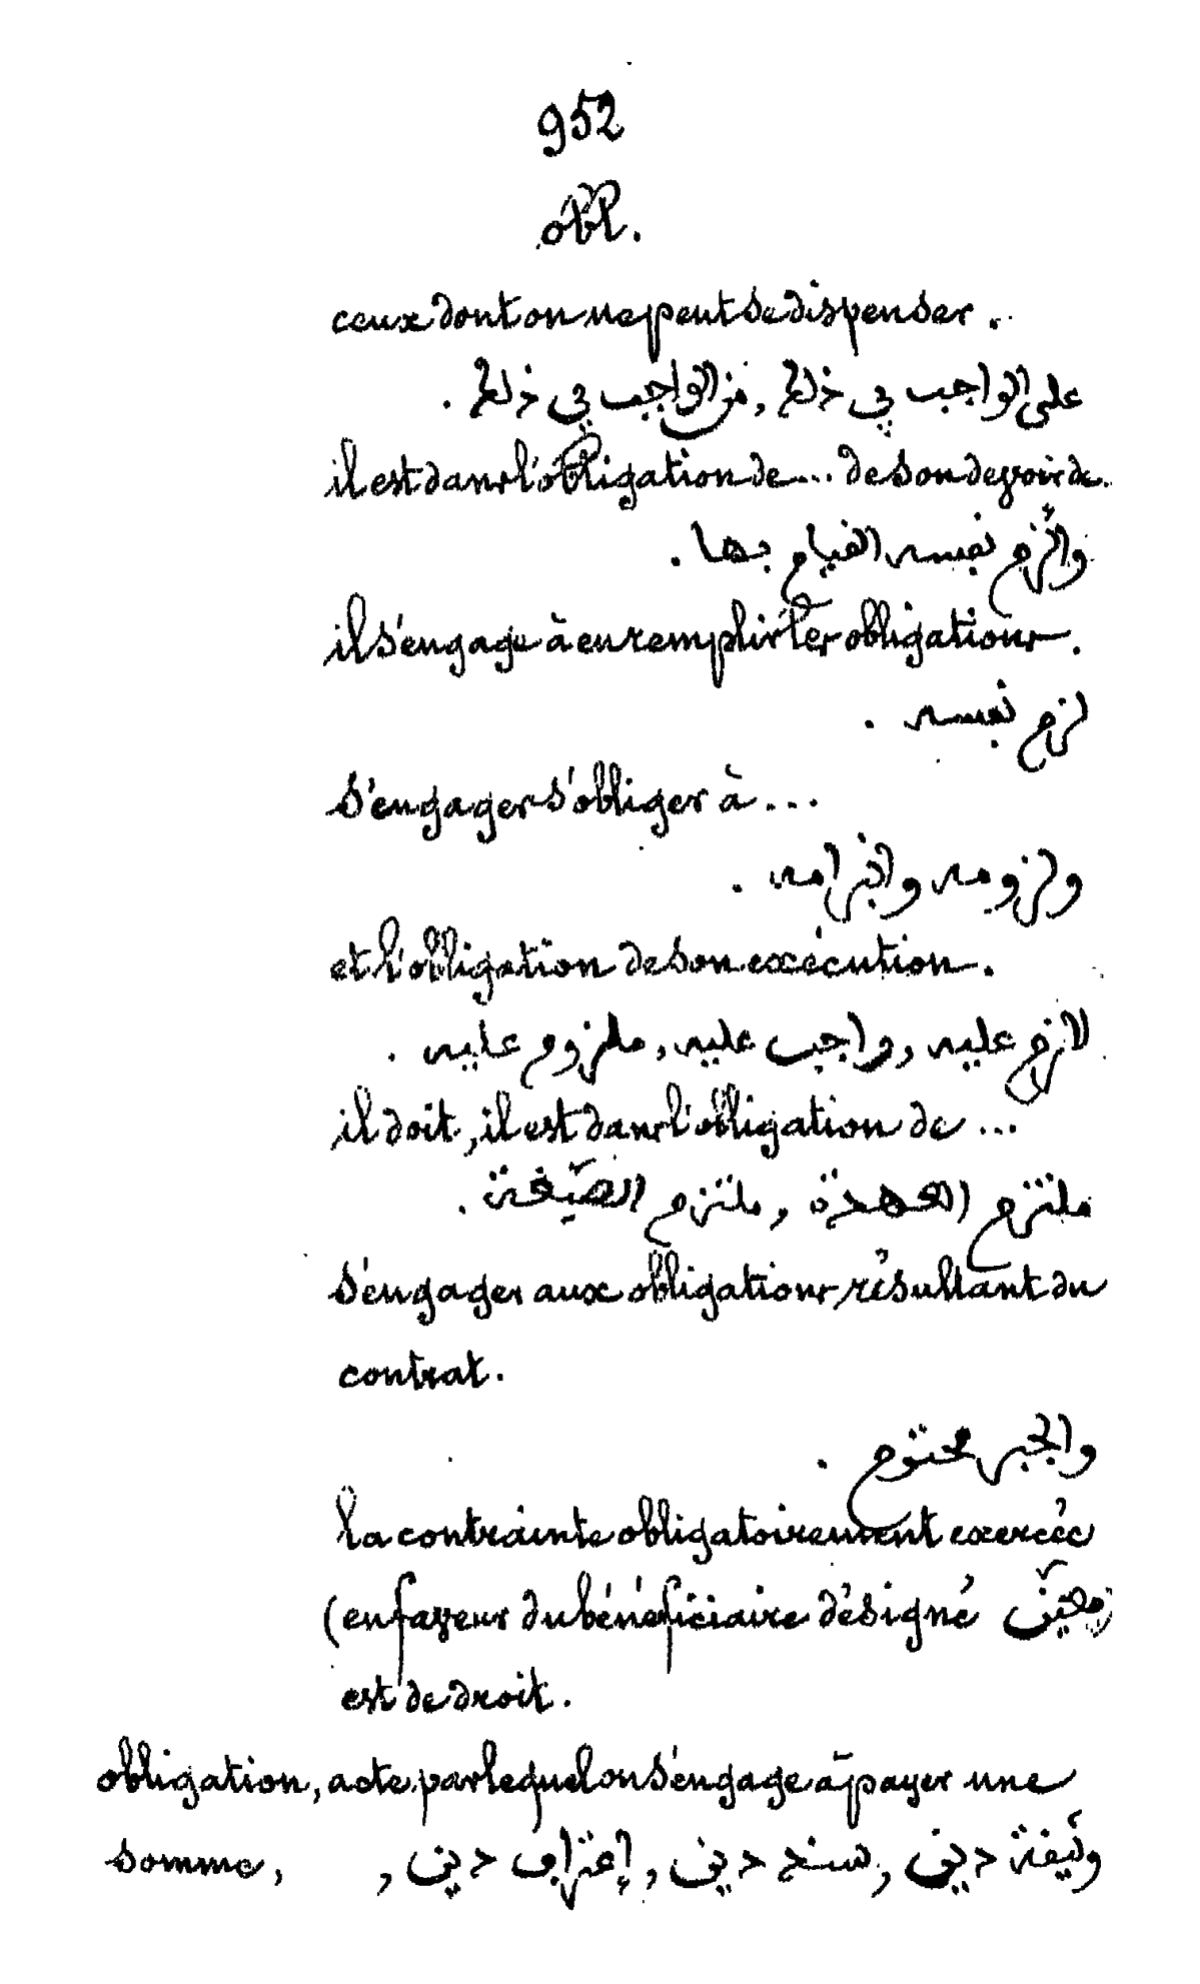 952
obl.
ceux dont on ne peut se dispenser.
على الواجب في ذلك, من الواجب في ذلك.
il est dans l'obligation de... de son devoir de.
والتزم نفسه القيام بها.
il s'engage à en remplir les obligations.
لزم نفسه.
s'engager s'obliger à...
ولزومه والتزامه.
et l'obligation de son exécution.
لازم عليه, واجب عليه, ملزوم عليه.
il doit, il est dans l'obligation de...
ملتزم العهدة, ملتزم الصيغة.
s'engager aux obligations résultant du
contrat.
والجبر محتوم.
la contrainte obligatoirement exercée
(en faveur du bénéficiaire désigné معيّن)
est de droit.
obligation, acte par lequel on s'engage à payer une
somme, وثيقة دين, سند دين, إعتراف دين,